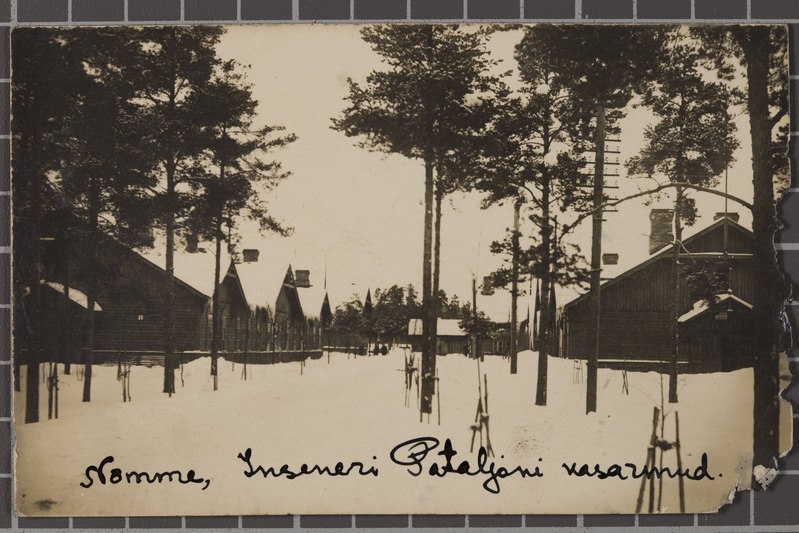 Nomme, Inseneri Pataljoni kasarmud.